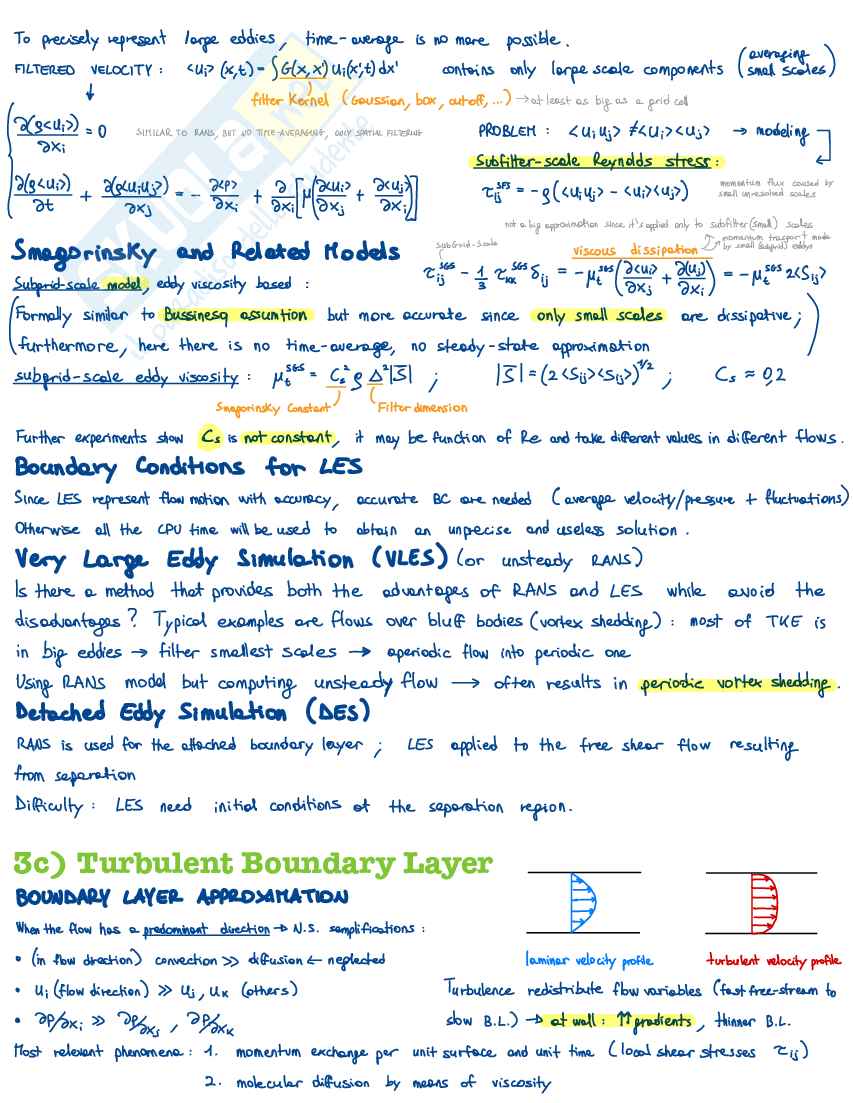 To precisely represent large eddies, time-average is no more possible.
FILTERED VELOCITY: <ui>(x,t) = ∫G(x,x')ui(x',t)dx' contains only large scale components (averaging small scales)
filter Kernel (Gaussian, box, cutoff, ...) → at least as big as a grid cell
∂(ρ<ui>)/∂xi = 0 SIMILAR TO RANS, BUT NO TIME-AVERAGING, ONLY SPATIAL FILTERING PROBLEM: <uiuj> ≠ <ui><uj> → modeling
Subfilter-scale Reynolds stress:
∂(ρ<ui>)/∂t + ∂(ρ<uiuj>)/∂xj = - ∂<p>/∂xi + ∂/∂xi[μ(∂<ui>/∂xj + ∂<uj>/∂xi)] τij^SFS = -ρ(<uiuj> - <ui><uj>) momentum flux caused by small unresolved scales
not a big approximation since it's applied only to subfilter (small) scales
Smagorinsky and Related Models
SubGrid-Scale viscous dissipation → momentum trasport made by small (subgrid) eddys
τij^SGS - 1/3 τkk^SGS δij = -μt^SGS(∂<ui>/∂xj + ∂<uj>/∂xi) = -μt^SGS 2<Sij>
Subgrid-scale model, eddy viscosity based:
(Formally similar to Bussinesq assumtion but more accurate since only small scales are dissipative;
furthermore, here there is no time-average, no steady-state approximation)
subgrid-scale eddy viscosity: μt^SGS = Cs² ρ Δ²|S̄|; |S̄| = (2<Sij><Sij>)^1/2; Cs ≈ 0,2
Smagorinsky Constant Filter dimension
Further experiments show Cs is not constant, it may be function of Re and take different values in different flows.
Boundary Conditions for LES
Since LES represent flow motion with accuracy, accurate BC are needed (average velocity/pressure + fluctuations)
Otherwise all the CPU time will be used to obtain an unprecise and useless solution.
Very Large Eddy Simulation (VLES) (or unsteady RANS)
Is there a method that provides both the advantages of RANS and LES while avoid the
disadvantages? Typical examples are flows over bluff bodies (vortex shedding): most of TKE is
in big eddies → filter smallest scales → aperiodic flow into periodic one
Using RANS model but computing unsteady flow → often results in periodic vortex shedding.
Detached Eddy Simulation (DES)
RANS is used for the attached boundary layer; LES applied to the free shear flow resulting
from separation
Difficulty: LES need initial conditions at the separation region.
3c) Turbulent Boundary Layer
BOUNDARY LAYER APPROXIMATION
When the flow has a predominant direction → N.S. semplifications:
• (in flow direction) convection >> diffusion ← neglected
laminar velocity profile turbulent velocity profile
• ui (flow direction) >> uj, uk (others)
Turbulence redistribute flow variables (fast free-stream to
• ∂p/∂xi >> ∂p/∂xj, ∂p/∂xk
slow B.L.) → at wall: ↑↑ gradients, thinner B.L.
Most relevant phenomena: 1. momentum exchange per unit surface and unit time (local shear stresses τij)
2. molecular diffusion by means of viscosity